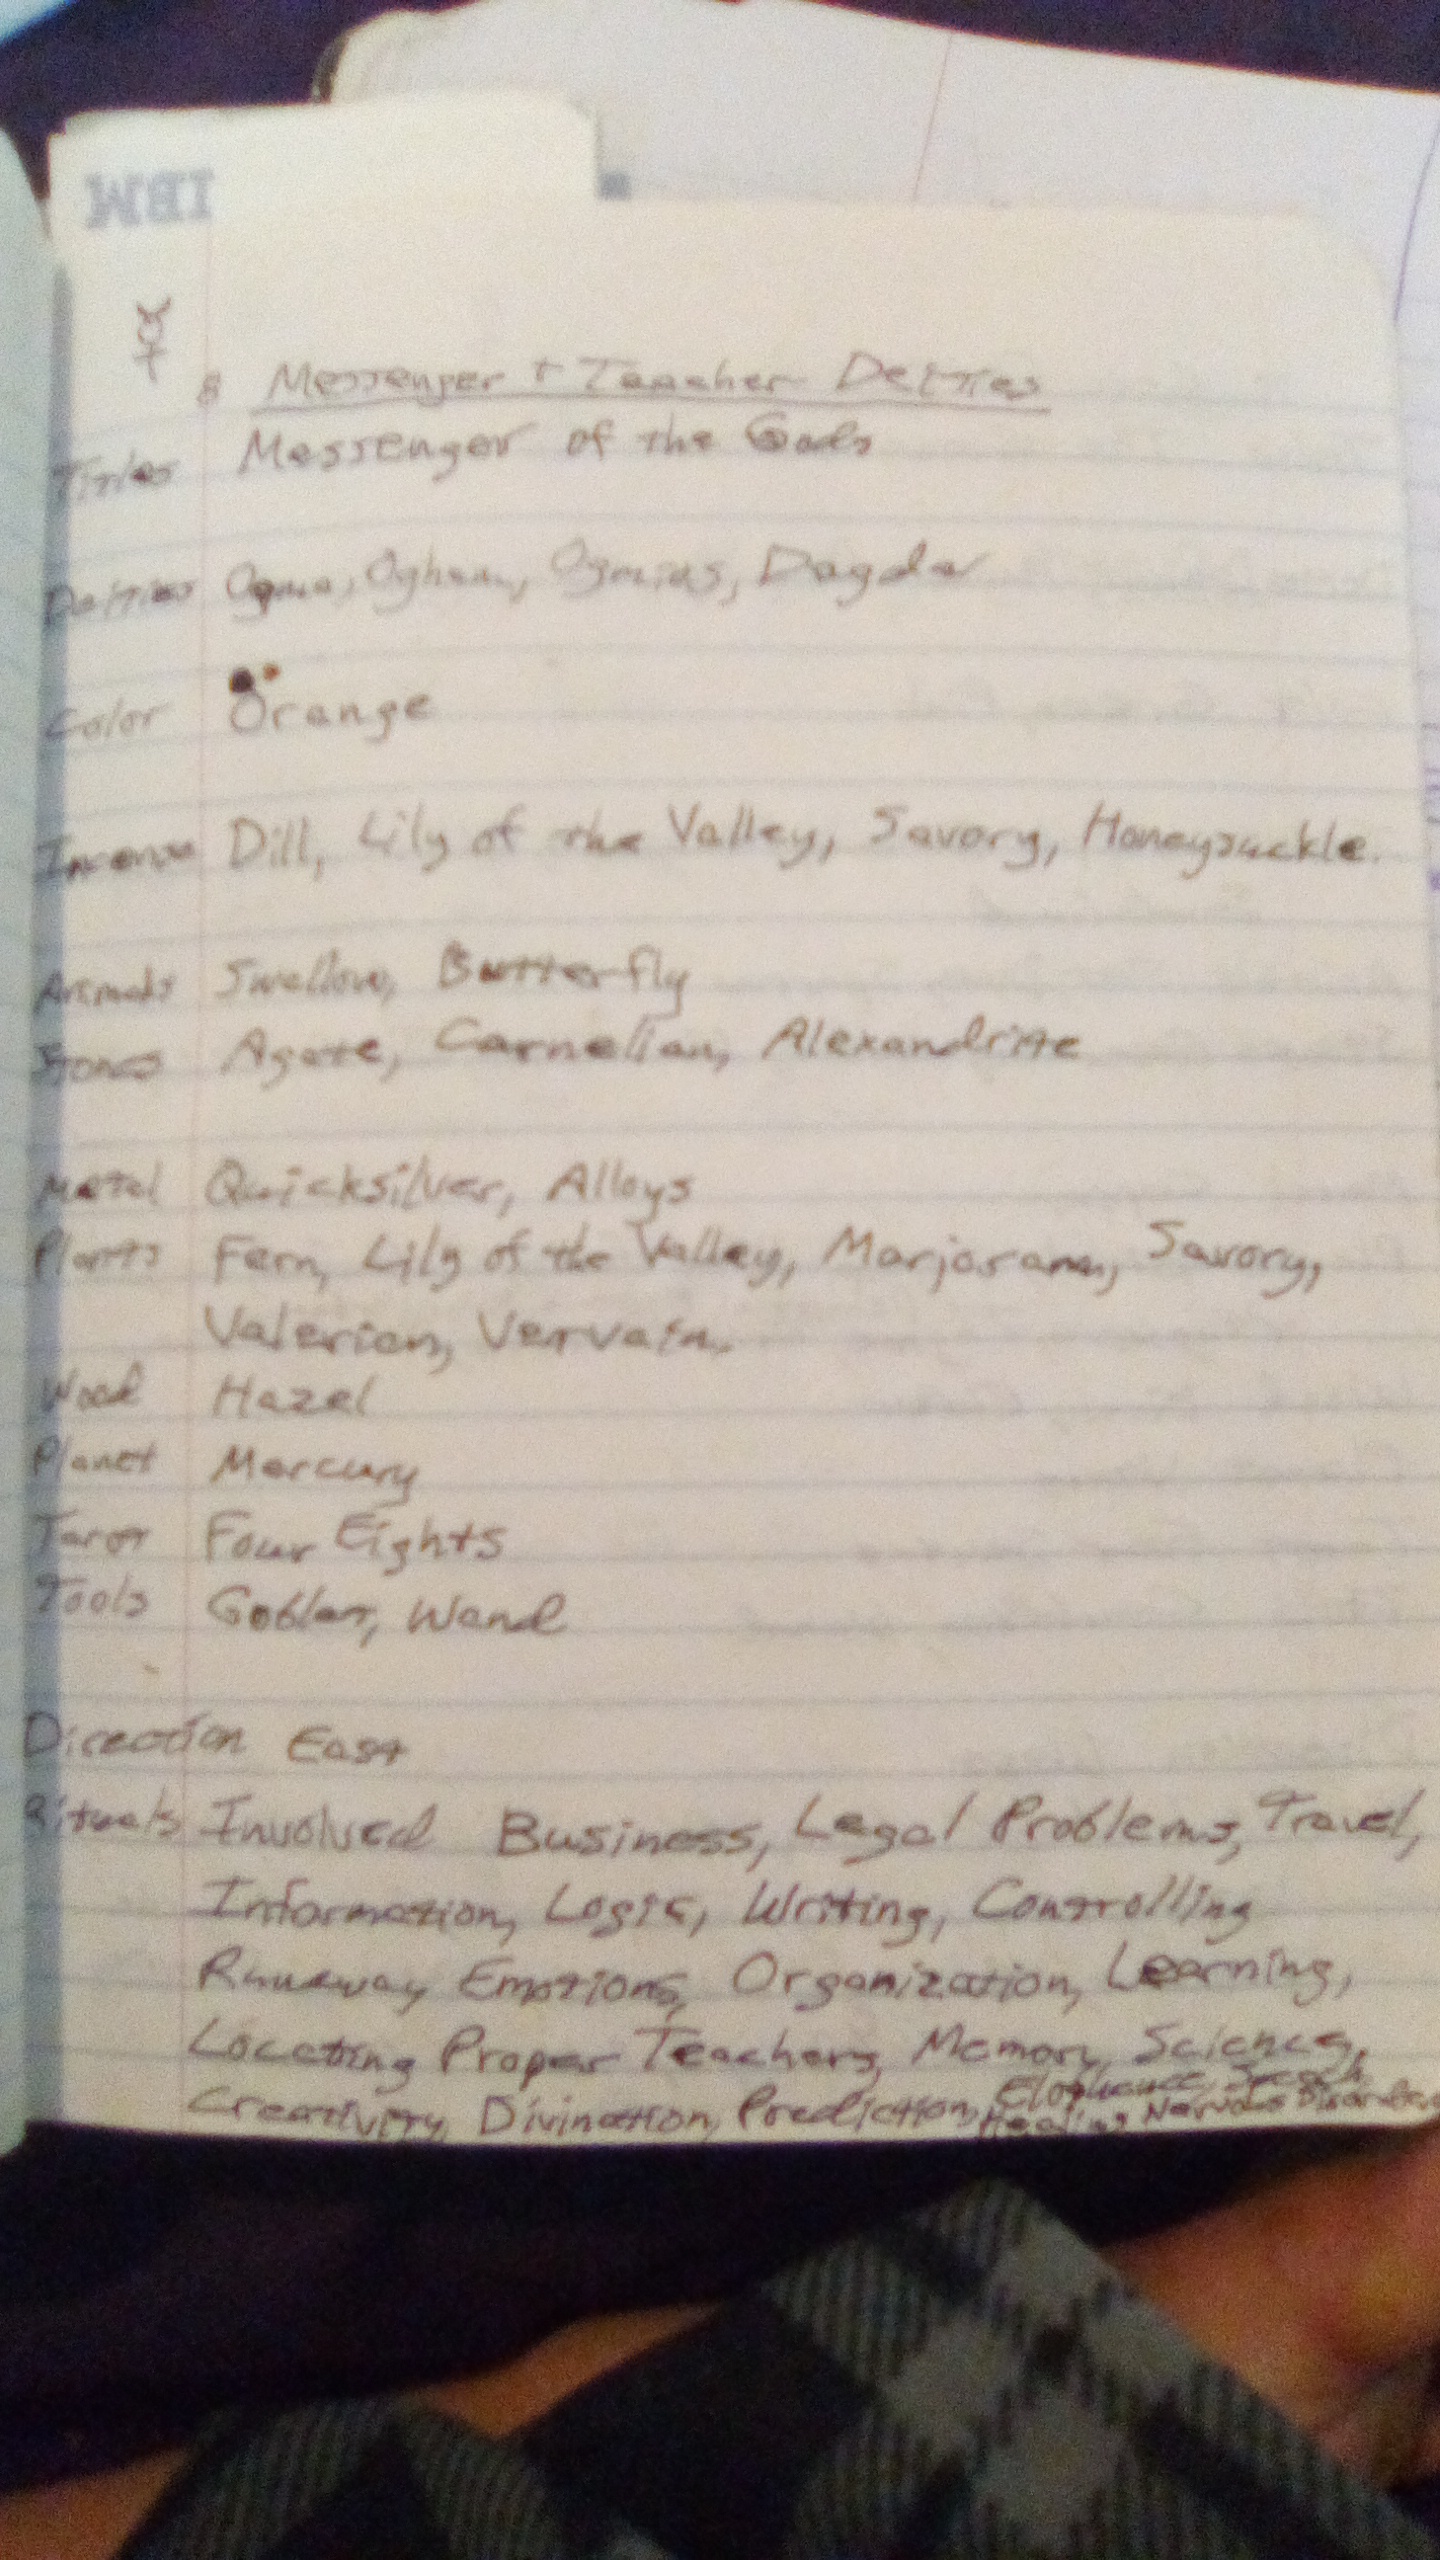 IBM
☿
8 Messenger + Teacher Deities
Titles Messenger of the Gods
Deities Ogma, Ogham, Ogmios, Dagda
Color Orange
Incense Dill, Lily of the Valley, Savory, Honeysuckle.
Animals Swallow, Butterfly
Stones Agate, Carnelian, Alexandrite
Metal Quicksilver, Alloys
Plants Fern, Lily of the Valley, Marjoram, Savory,
Valerian, Vervain.
Wood Hazel
Planet Mercury
Tarot Four Eights
Tools Goblet, Wand
Direction East
Rituals Involved Business, Legal Problems, Travel,
Information, Logic, Writing, Controlling
Runaway Emotions, Organization, Learning,
Locating Proper Teachers, Memory, Science,
Creativity, Divination, Prediction, Eloquence, Speech,
Healing Nervous Disorders